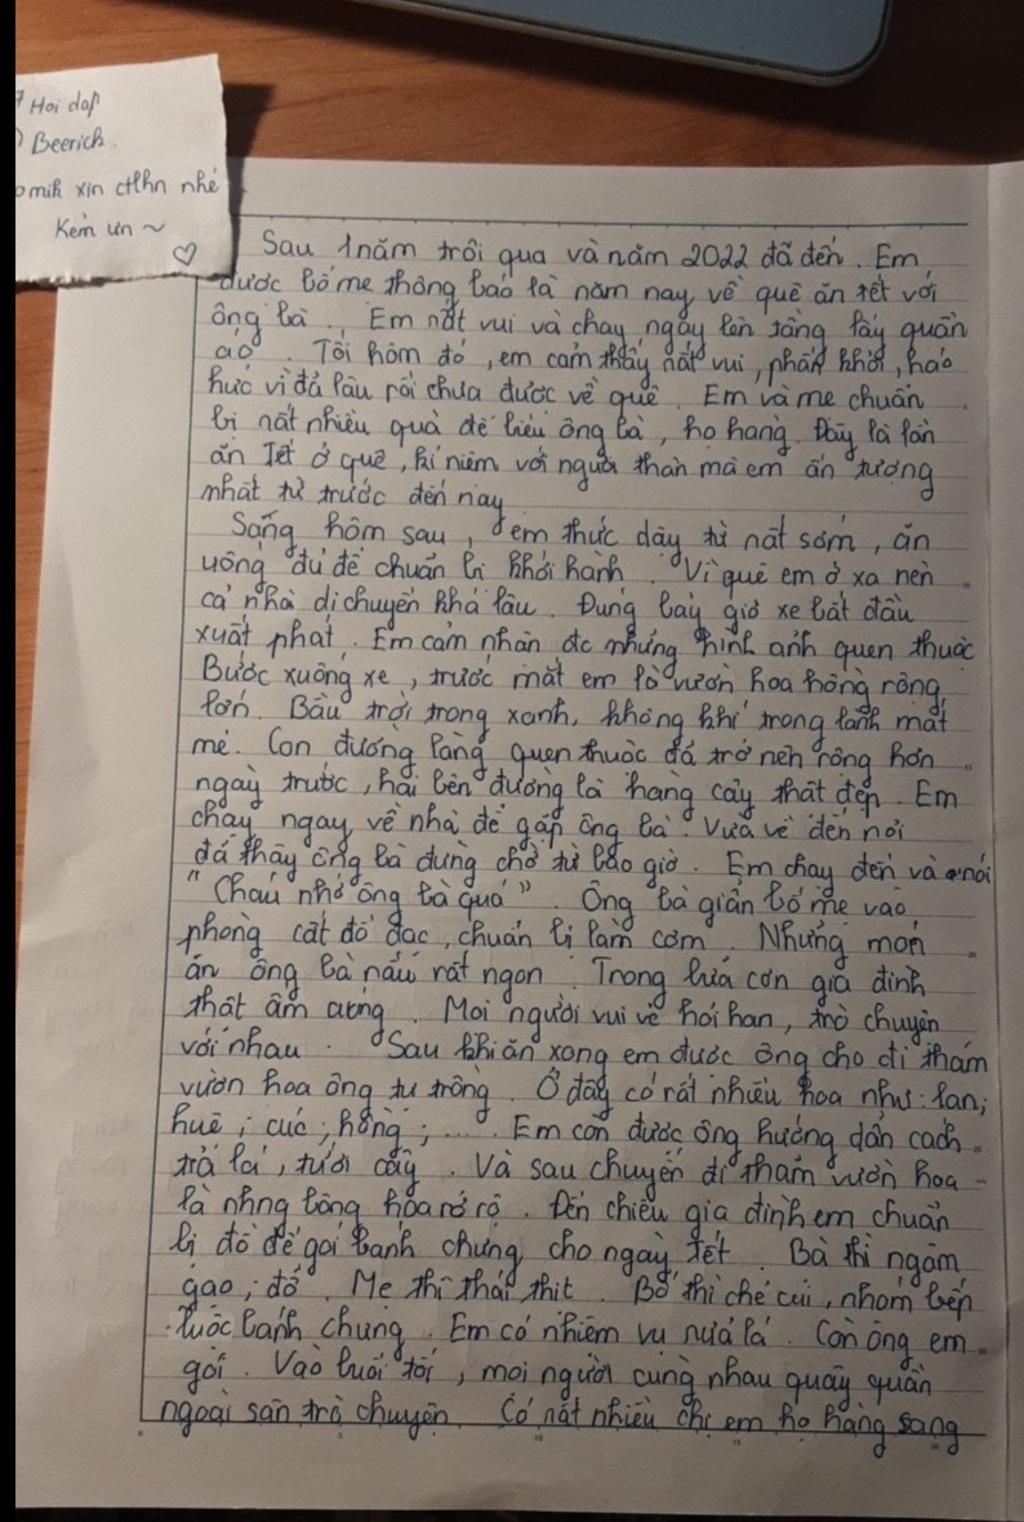 Hoi dap
Beerich.
mik xin ctlhn nhé
Kẻm ưn ~
Sau 1 năm trôi qua và năm 2022 đã đến. Em
được bố mẹ thông báo là năm nay về quê ăn tết với
ông bà. Em nất vui và chạy ngay lên tầng lấy quần
áo. Tối hôm đó, em cảm thấy nất vui, phấn khởi, háo
hức vì đã lâu rồi chưa được về quê. Em và mẹ chuẩn
bị nất nhiều quà để biếu ông bà, họ hàng. Đây là lần
ăn Tết ở quê, kỉ niệm với người thân mà em ấn tượng
nhất từ trước đến nay
Sáng hôm sau, em thức dậy từ nất sớm, ăn
uống đủ để chuẩn bị khởi hành. Vì quê em ở xa nên
cả nhà di chuyển khá lâu. Đúng bảy giờ xe bắt đầu
xuất phát. Em cảm nhận đc những hình ảnh quen thuộc
Bước xuống xe, trước mắt em là vườn hoa hồng rộng
lớn. Bầu trời trong xanh, không khí trong lành mát
mẻ. Con đường làng quen thuộc đã trở nên rộng hơn
ngày trước, hai bên đường là hàng cây thật đẹp. Em
chạy ngay về nhà để gặp ông bà. Vừa về đến nơi
đã thấy ông bà đứng chờ từ bao giờ. Em chạy đến và nói
"Cháu nhớ ông bà quá". Ông bà giản bố mẹ vào
phòng cất đồ đạc, chuẩn bị làm cơm. Những món
ăn ông bà nấu rất ngon. Trong bữa cơn gia đình
thật ấm cúng. Mọi người vui vẻ hỏi han, trò chuyện
với nhau. Sau khi ăn xong em được ông cho đi thăm
vườn hoa ông tự trồng. Ở đây có rất nhiều hoa như: lan;
huệ; cúc; hồng;.... Em còn được ông hướng dẫn cách
trả lá, tưới cây. Và sau chuyến đi thăm vườn hoa
là nhng bông hoa rớ rộ. Đến chiều gia đình em chuẩn
bị đồ để gói bánh chưng cho ngày tết. Bà thì ngâm
gạo; đỗ. Mẹ thì thái thịt. Bố thì chẻ củi, nhóm bếp
luộc bánh chưng. Em có nhiệm vụ nửa lá. Còn ông em
gói. Vào buổi tối, mọi người cùng nhau quây quần
ngoài sân trò chuyện. Có nất nhiều chị em họ hàng sang